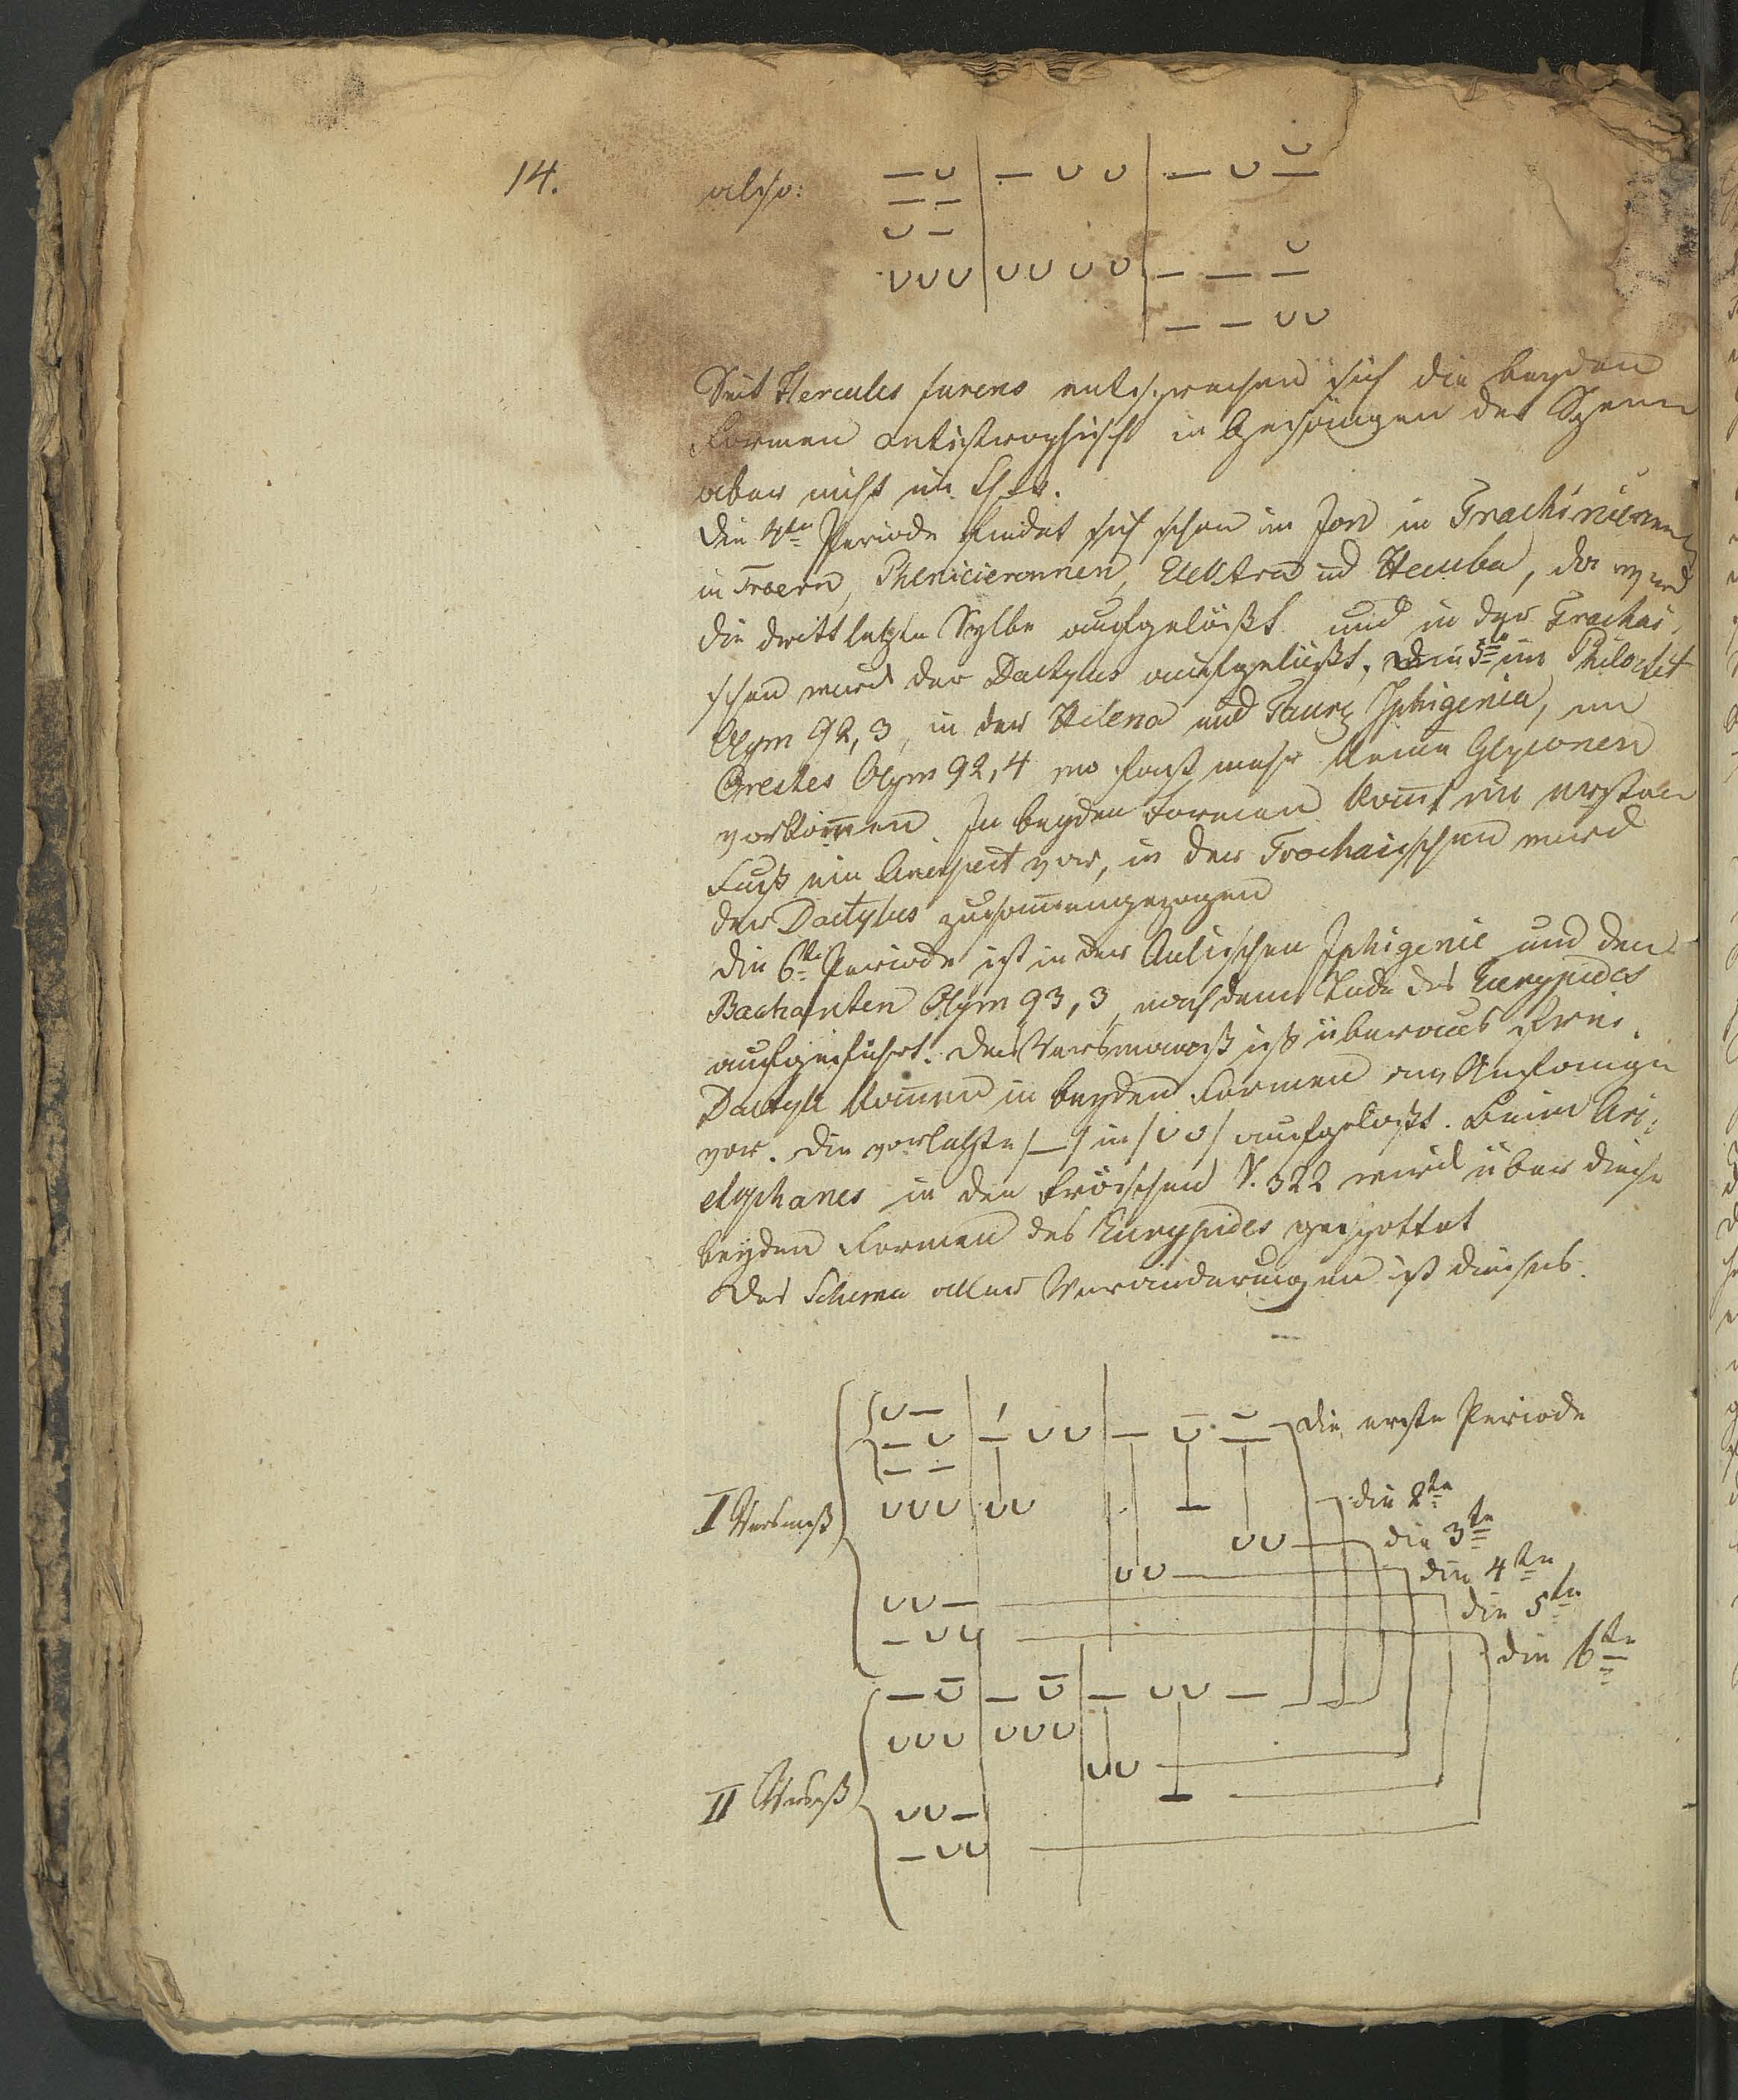 14.
also: — ∪ | — ∪ ∪ | — ∪ ∪̲
— —
∪ —
∪∪∪ | ∪∪ ∪∪ | — — ∪̲
— — ∪∪
Seit Hercules furens entsprechen sich die beyden
Formen antistrophisch in Gesängen der Szene
aber nicht im Chor.
Die 4te Periode findet sich schon im Jon in Trachinierinnen
in Troern, Phenicierinnen, Elektra und Hecuba, da wird
die drittletzte Sylbe aufgelößt und in der Trochai,
schen wird der Dactylus aufgelößt, Die 5te im Philoctet
Olym 92,3, in der Helena und Taur. Iphigenia, im
Orestes Olym 92,4 wo fast mehr keine Glyconen
vorkom̄en. In beyden Formen kom̄t im ersten
Fuß ein Anapest vor, in der Trochaischen wird
der Dactylus zusam̄engezogen
Die 6te Periode ist in der Aulischen Iphigenie und den
Bachanten Olym 93,3, nach dem Tode des Eurypides
aufgeführt. Das Versmaaß ist überaus frei.
Dactyle kom̄en in beyden Formen am Anfange
vor. Die vorletzte /—/ in /∪∪/ aufgelößt. Beim Ari:
stophanes in den Fröschen V. 322 wird über diese
beyden Formen des Eurypides gespottet
Das Schema aller Veränderungen ist dieses.
∪ —
— ∪ | — ∪∪ | — ∪̄ ∪̲ die erste Periode
— —
I Versmaß ∪∪∪ | ∪∪ — die 2te
∪∪ die 3te
∪∪ die 4te
∪∪— die 5te
—∪∪ die 6te
— ∪̄ | — ∪̄ | — ∪∪ —
∪∪∪ | ∪∪∪
∪∪
II Versmaß —
∪∪—
—∪∪